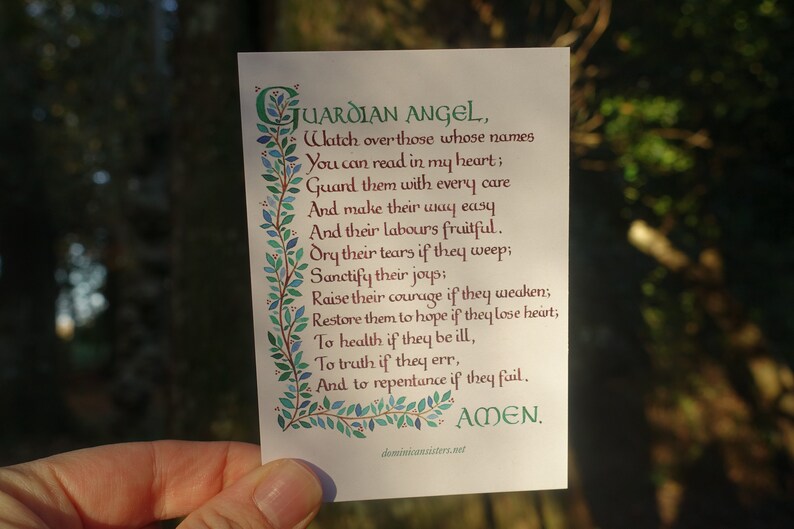 Guardian Angel,
Watch over those whose names
You can read in my heart;
Guard them with every care
And make their way easy
And their labours fruitful.
Dry their tears if they weep;
Sanctify their joys;
Raise their courage if they weaken;
Restore them to hope if they lose heart;
To health if they be ill,
To truth if they err,
And to repentance if they fail.
AMEN.
dominicansisters.net